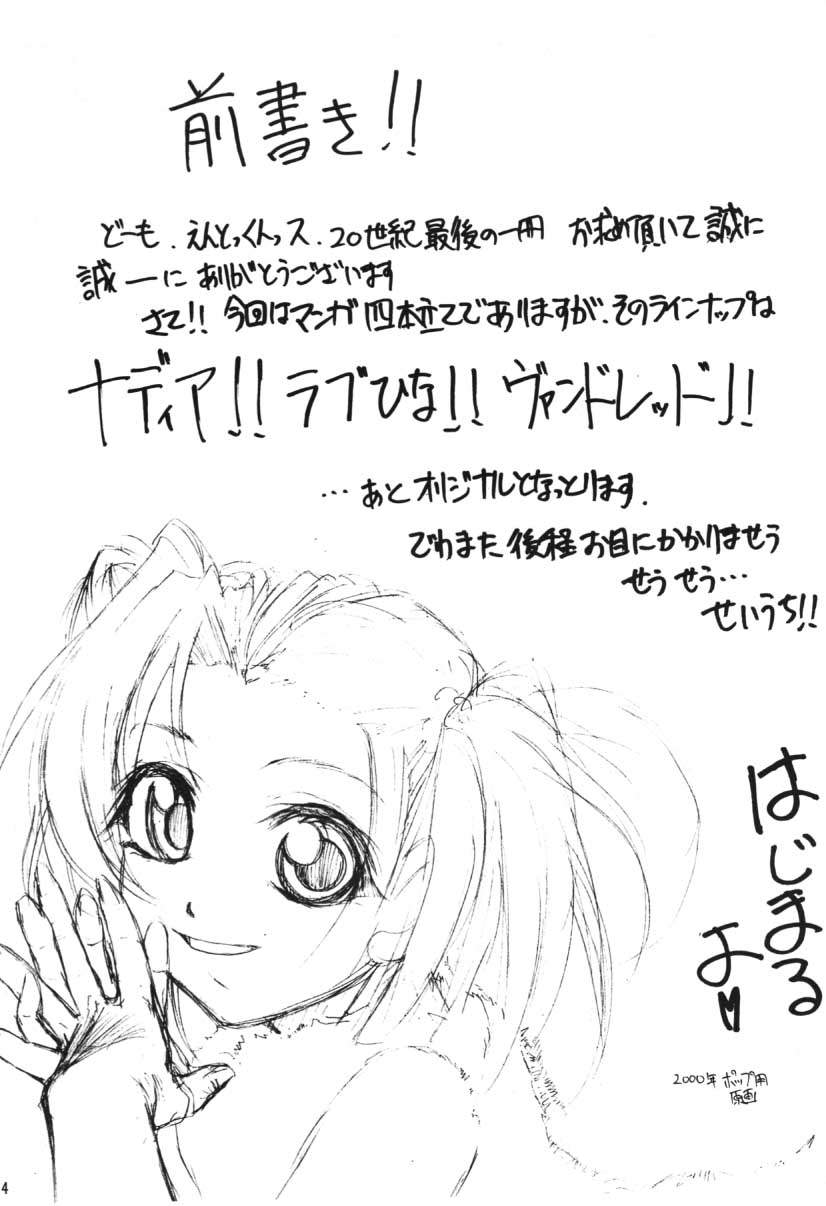 前書き!!
どーも、えんとっくんっス、20世紀最後の一冊 お求め頂いて誠に
誠一に ありがとうございます
さて!! 今回はマンガ四本立てでありますが、そのラインナップは
ナディア!! ラブひな!! ヴァンドレッド!!
…あとオリジナルとなっとります。
でわまた後程お目にかかりませう
せう せう…
せいうち!!
はじまる
よ♥
2000年 ポップ用
原画
4